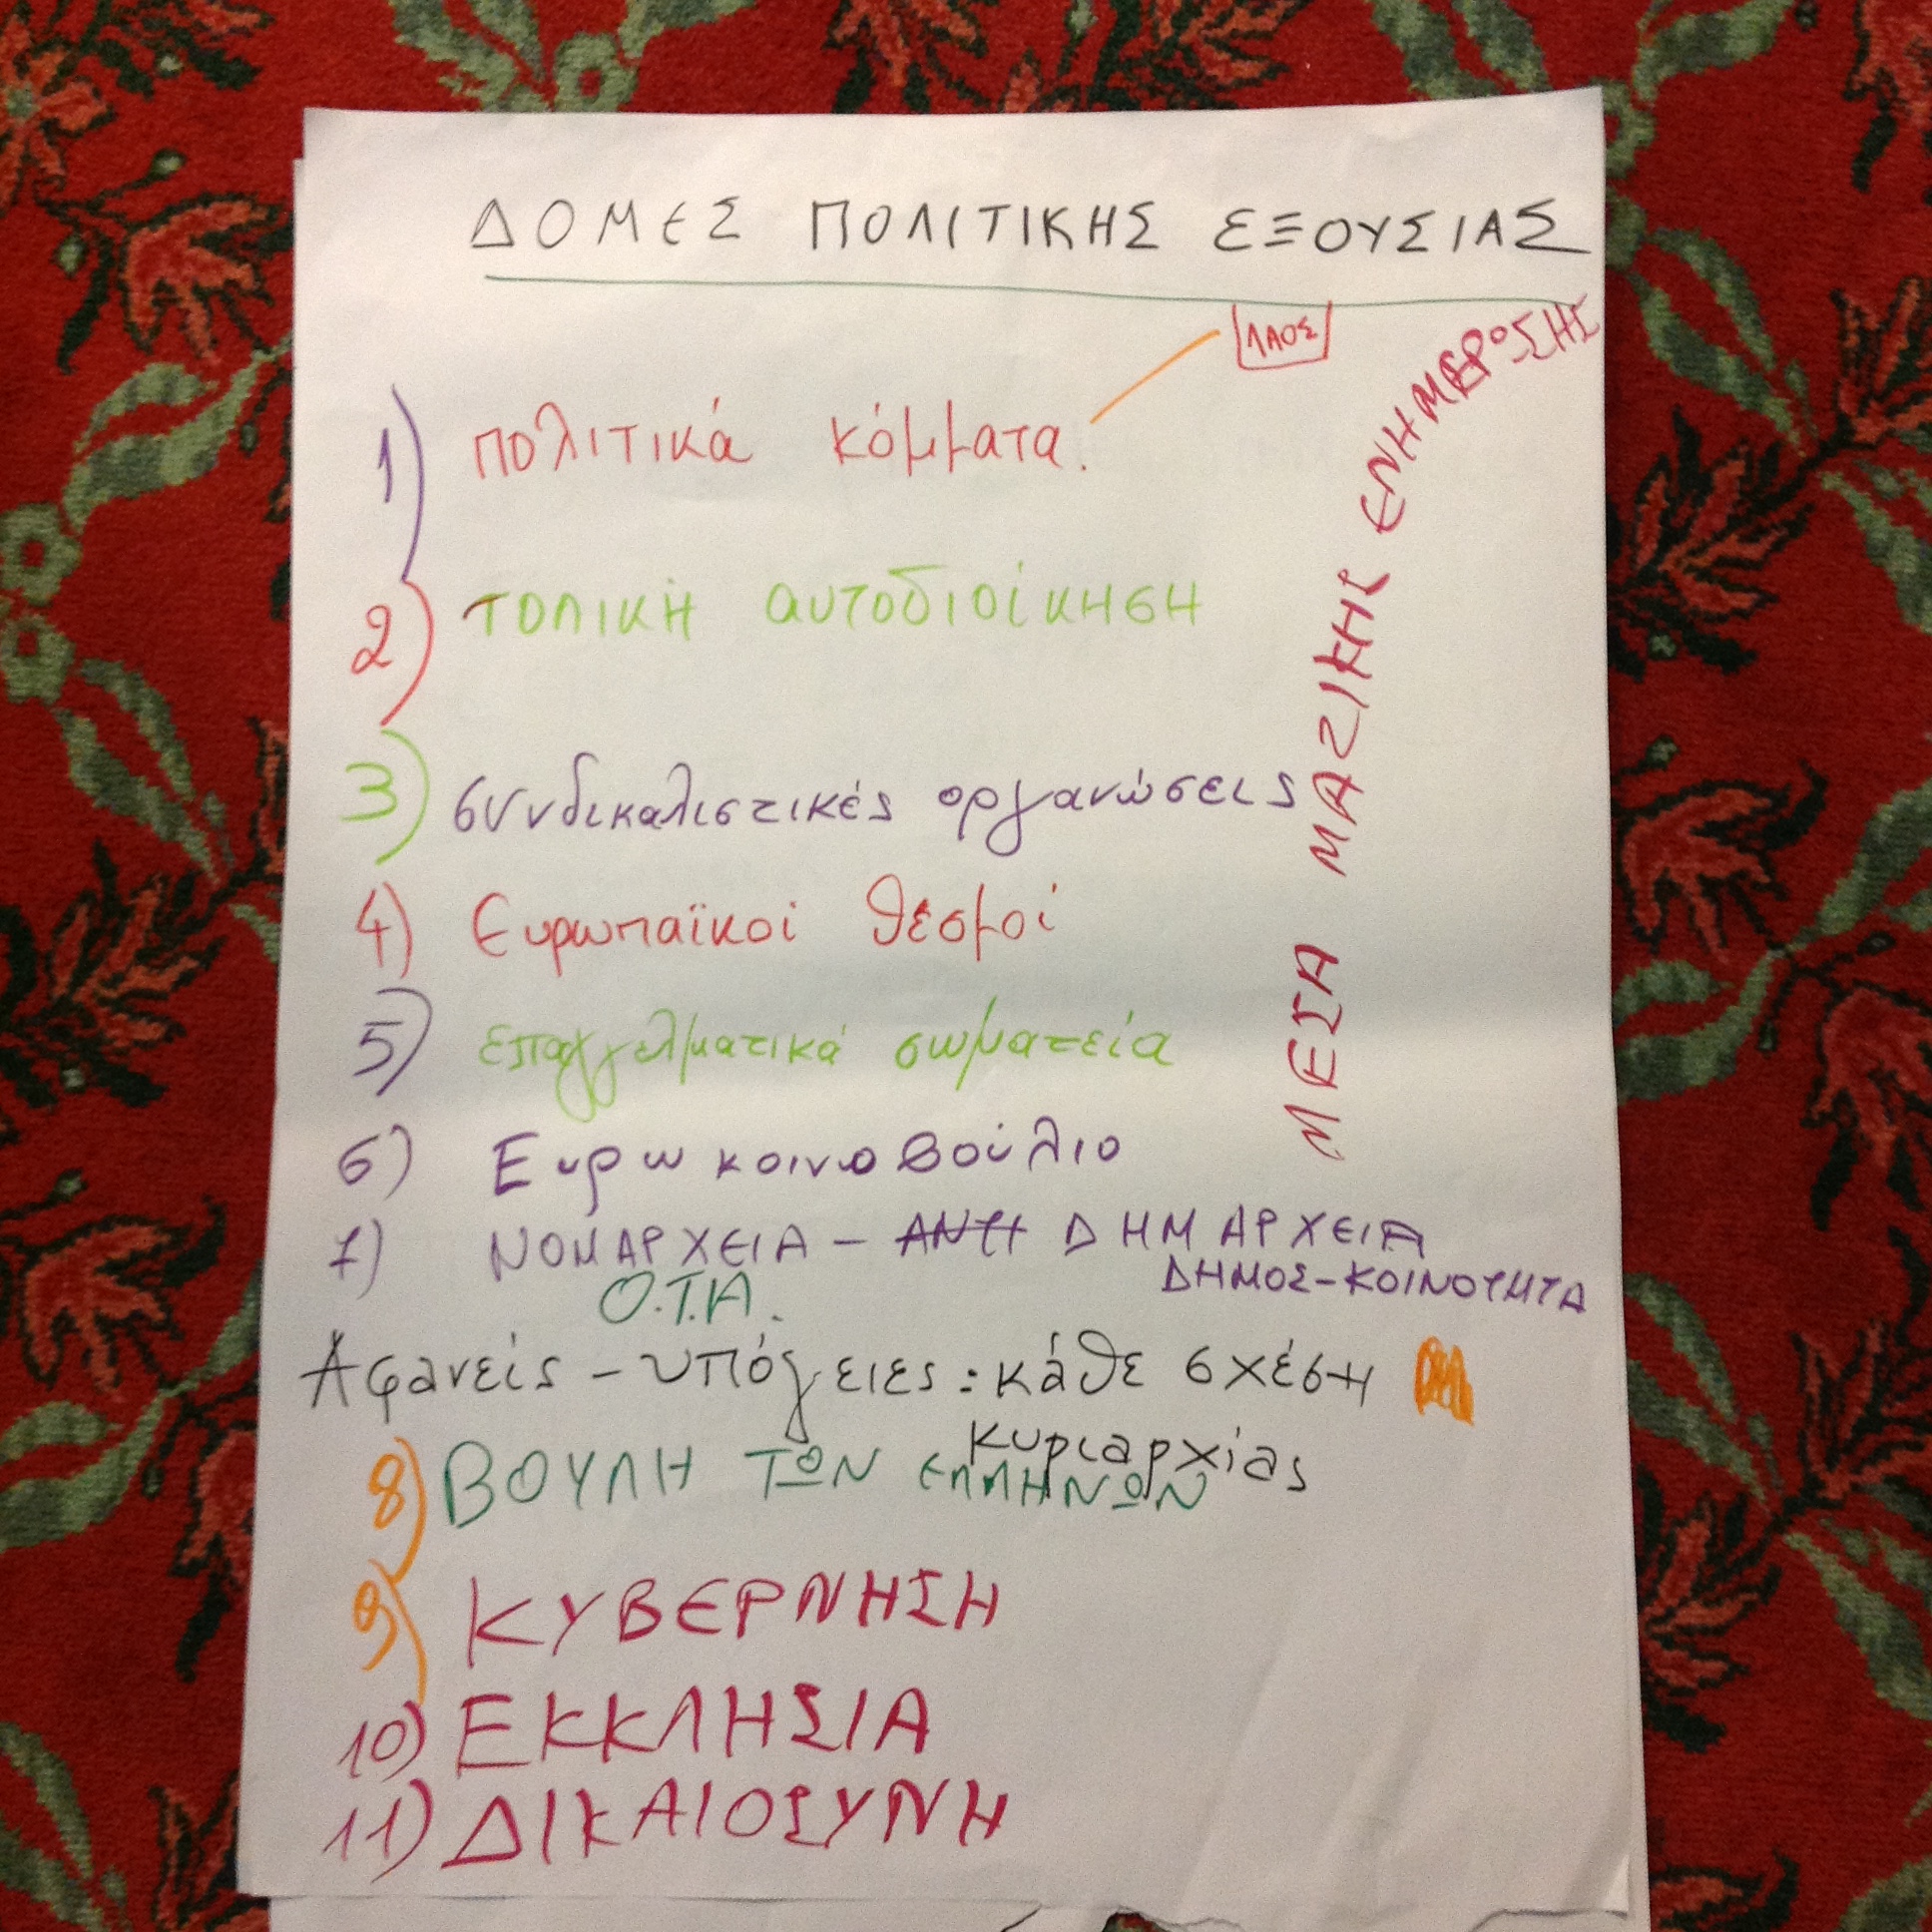 ΔΟΜΕΣ ΠΟΛΙΤΙΚΗΣ ΕΞΟΥΣΙΑΣ
ΛΑΟΣ
1) πολιτικά κόμματα.
2) τοπική αυτοδιοίκηση
3) συνδικαλιστικές οργανώσεις
4) Ευρωπαϊκοί θεσμοί
5) επαγγελματικά σωματεία
6) Ευρω κοινωβούλιο
7) ΝΟΜΑΡΧΕΙΑ - ΔΗΜΑΡΧΕΙΑ
ΔΗΜΟΣ-ΚΟΙΝΟΤΗΤΑ
Ο.Τ.Α.
Αφανείς - υπόγειες : κάθε σχέση
κυριαρχίας
8) ΒΟΥΛΗ ΤΩΝ ΕΛΛΗΝΩΝ
9) ΚΥΒΕΡΝΗΣΗ
10) ΕΚΚΛΗΣΙΑ
11) ΔΙΚΑΙΟΣΥΝΗ
ΜΕΣΑ ΜΑΖΙΚΗΣ ΕΝΗΜΕΡΟΣΗΣ